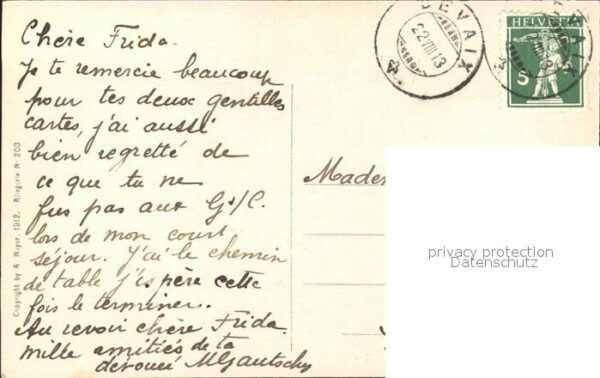 Chère Frida.
Je te remercie beaucoup
pour tes deux gentilles
cartes, j'ai aussi
bien regretté de
ce que tu ne
fus pas aux Gs/C.
lors de mon court
séjour. J'ai le chemin
de table j'espère cette
fois le terminer.
Au revoir chère Frida.
mille amitiés de ta
dévouée MGautschy
Copyright by R. Mayer, 1912. Allegorie Nr. 200
BEVAIX
22.VIII.13
HELVETIA
5
Mades
privacy protection
Datenschutz